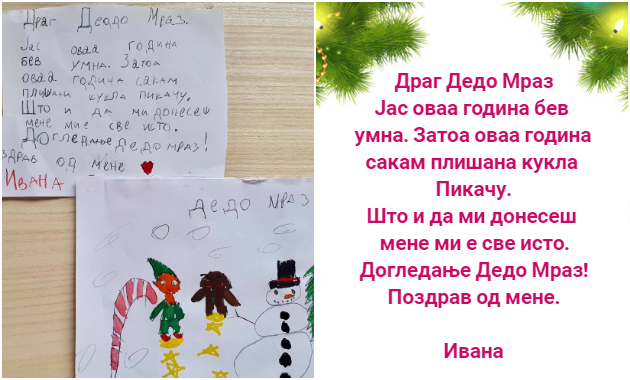 Драг Деодо Мраз.
Јас оваа година
бев умна. Затоа
оваа година сакам
плишани кукла пикачу.
Што и да ми донесеш
мене мие све исто.
Догледање дедо мраз!
здрав од мене
Ивана
дедо мраз
Драг Дедо Мраз
Јас оваа година бев
умна. Затоа оваа година
сакам плишана кукла
Пикачу.
Што и да ми донесеш
мене ми е све исто.
Догледање Дедо Мраз!
Поздрав од мене.
Ивана